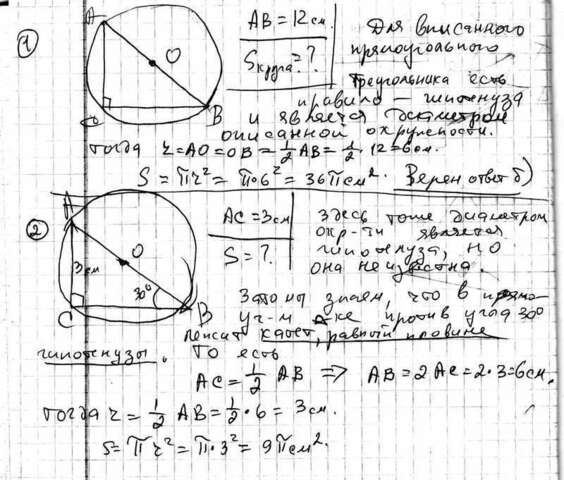 1
A
O
C
B
AB = 12 см.
Sкруга = ?
Для вписанного
прямоугольного
треугольника есть
правило — гипотенуза
и является диаметром
описанной окружности.
Тогда r = AO = OB = 1/2 AB = 1/2 · 12 = 6 см.
S = πr² = π·6² = 36π см². Верен ответ б)
2
A
O
3 см
30°
C
B
AC = 3 см
S = ?
Здесь тоже диаметром
окр-ти является
гипотенуза, но
она неизвестна.
Зато мы знаем, что в прямо-
уг-м Δке против угла 30°
лежит катет, равный половине
гипотенузы. То есть
AC = 1/2 AB ⇒ AB = 2 AC = 2·3 = 6 см.
Тогда r = 1/2 AB = 1/2 · 6 = 3 см.
S = πr² = π·3² = 9π см².